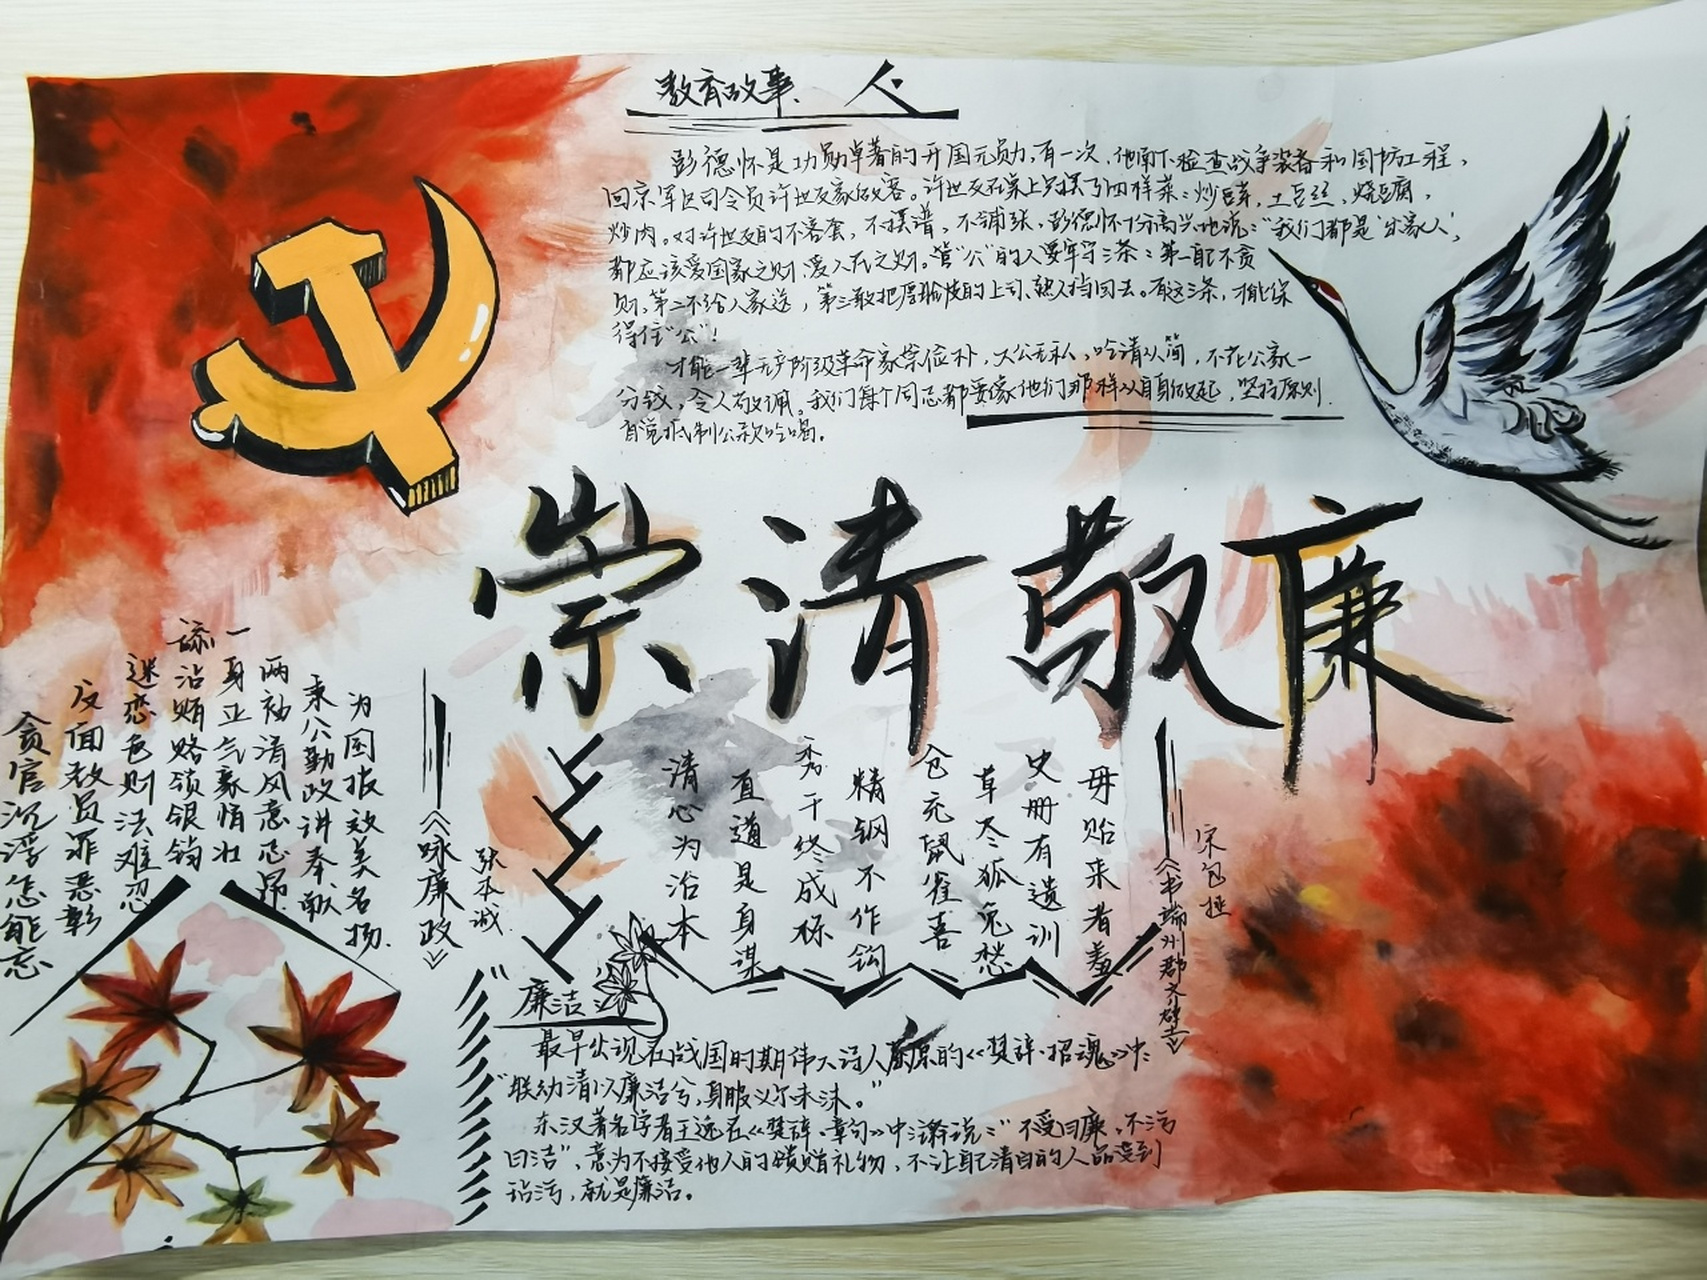 教育故事
彭德怀是功勋卓著的开国元勋,有一次,他南下检查战争装备和国防工程,
回京军区司令员许世友家做客。许世友在桌上只摆了四样菜:炒豆芽,土豆丝、烧豆腐,
炒肉。对许世友的不客套,不摆谱,不铺张,彭德怀十分高兴地说:“我们都是‘穷家人’,
都应该爱国家之财,爱人民之财。管“公”的人要牢守三条:第一自己不贪
财,第二不给人家送,第三敢把厚脸皮的上司、熟人挡回去。有这三条,才能保
得住“公”!
才能一辈无产阶级革命家崇位朴,大公无私,吃请从简,不花公家一
分钱,令人敬佩。我们每个同志都要像他们那样从自身做起,坚持原则
自觉抵制公款吃喝。
崇清敬廉
为国报效美名扬.
秉公勤政讲奉献
两袖清风意志昂
一身正气豪情壮
舔沾贿赂领银钩
迷恋色财法难忍
反面教员罪恶彰
贪官沉浮怎能忘
《咏廉政》
张本诚
清心为治本
直道是身谋
秀干终成栋
精钢不作钩
仓充鼠雀喜
草尽狐兔愁
史册有遗训
毋贻来者羞
《书端州郡斋壁》
宋包拯
廉洁
最早出现在战国时期伟大诗人屈原的《楚辞·招魂》中:
“朕幼清以廉洁兮,身服义尔未沫。”
东汉著名学者王逸在《楚辞·章句》中注释说:“不受曰廉,不污
曰洁”,意为不接受他人的馈赠礼物,不让自己清白的人品受到
玷污,就是廉洁。